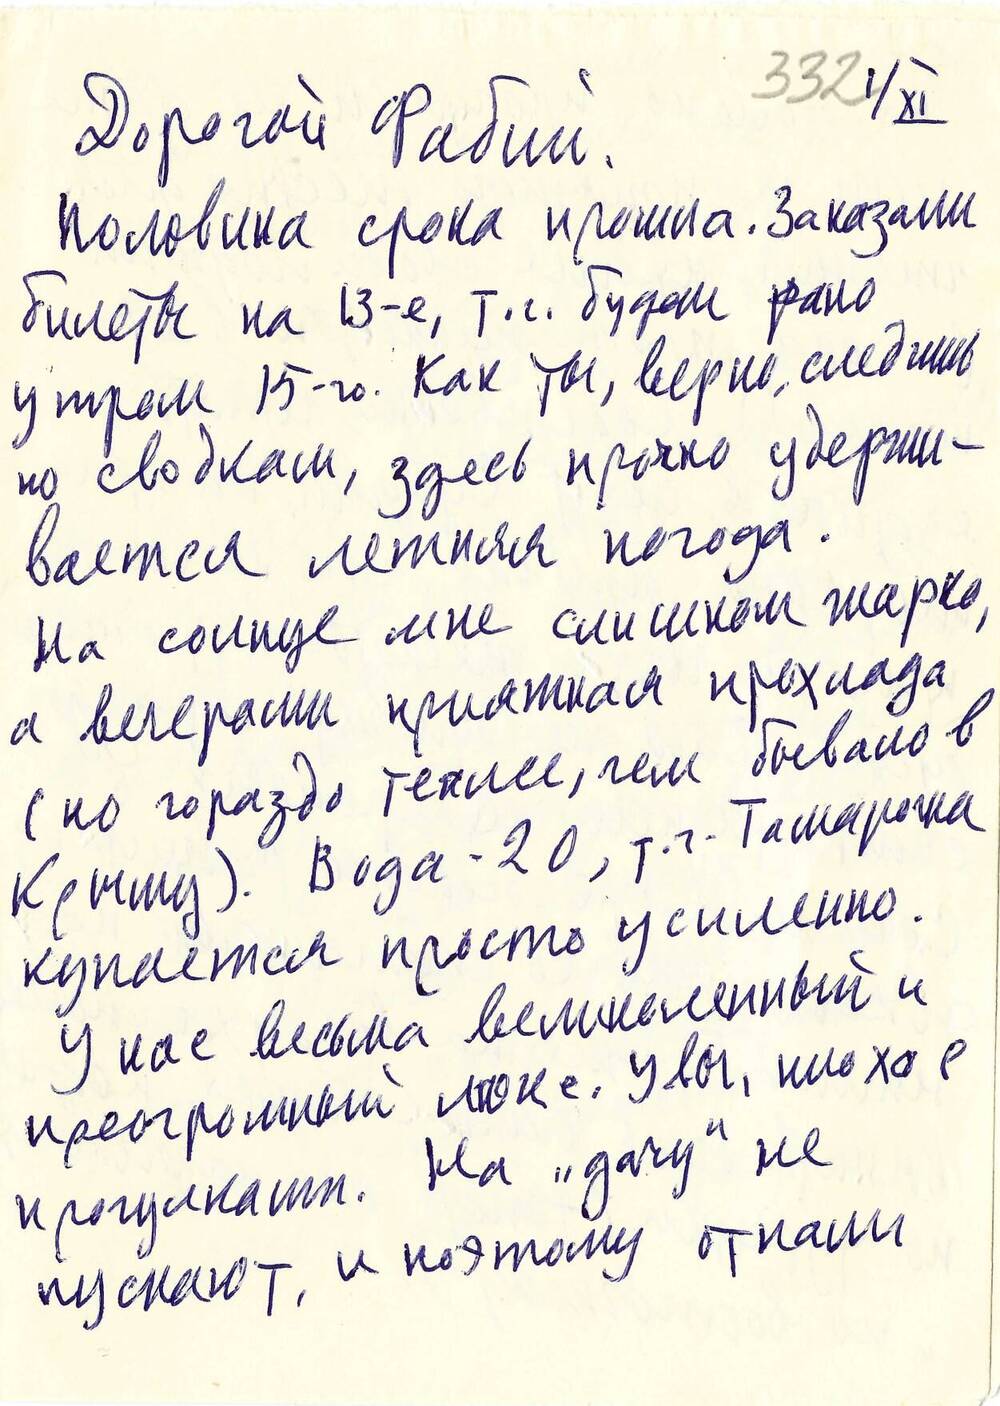 332 1/XI
Дорогой Фабий.
Половина срока прошла. Заказали
билеты на 13-е, т.ч. будем рано
утром 15-го. Как ты, верно, следишь
по сводкам, здесь прочно удержи-
вается летняя погода.
На солнце мне слишком жарко,
а вечерами приятная прохлада
(но гораздо теплее, чем бывало в
Крыму). Вода - 20, т.ч. Тамарочка
купается просто усиленно.
У нас весьма великолепный и
преогромный люкс. Увы, плохо с
прогулками. На „дачу" не
пускают, и поэтому отпали